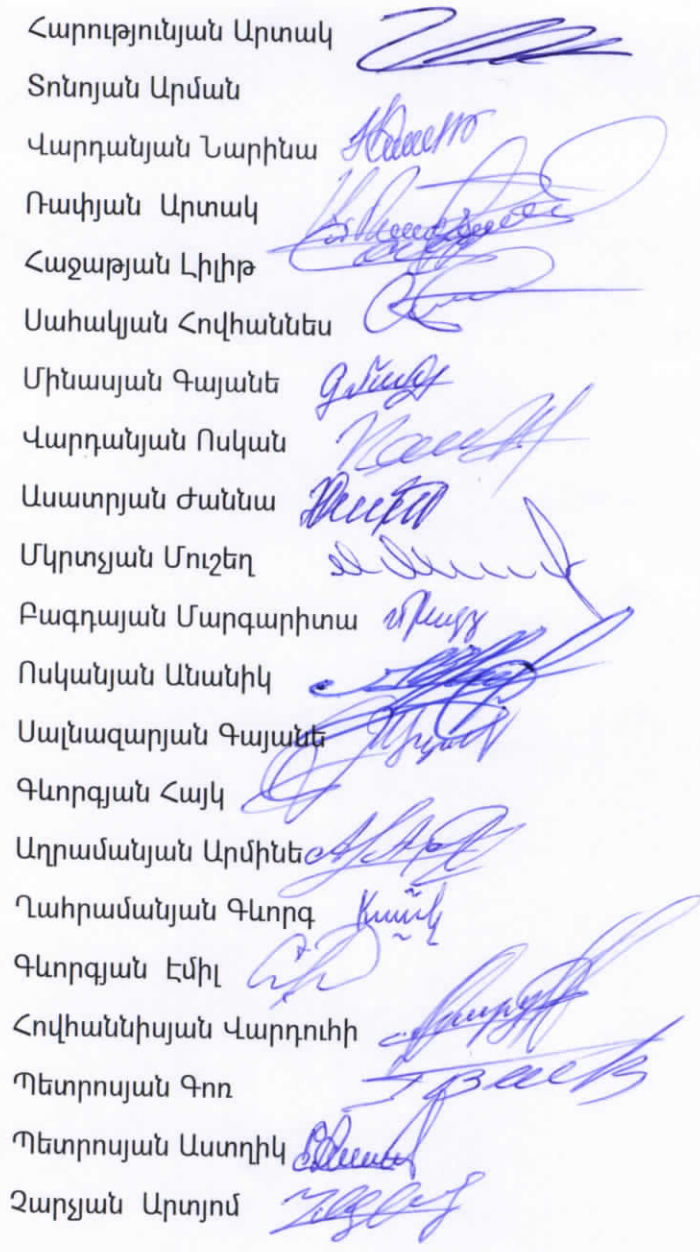 Հարությունյան Արտակ
Տոնոյան Արման
Վարդանյան Նարինա
Ռափյան Արտակ
Հաջաթյան Լիլիթ
Սահակյան Հովհաննես
Մինասյան Գայանե
Վարդանյան Ոսկան
Ասատրյան Ժաննա
Մկրտչյան Մուշեղ
Բագդայան Մարգարիտա
Ոսկանյան Անանիկ
Սալնազարյան Գայանե
Գևորգյան Հայկ
Աղրամանյան Արմինե
Ղահրամանյան Գևորգ
Գևորգյան Էմիլ
Հովհաննիսյան Վարդուհի
Պետրոսյան Գոռ
Պետրոսյան Աստղիկ
Չարչյան Արտյոմ